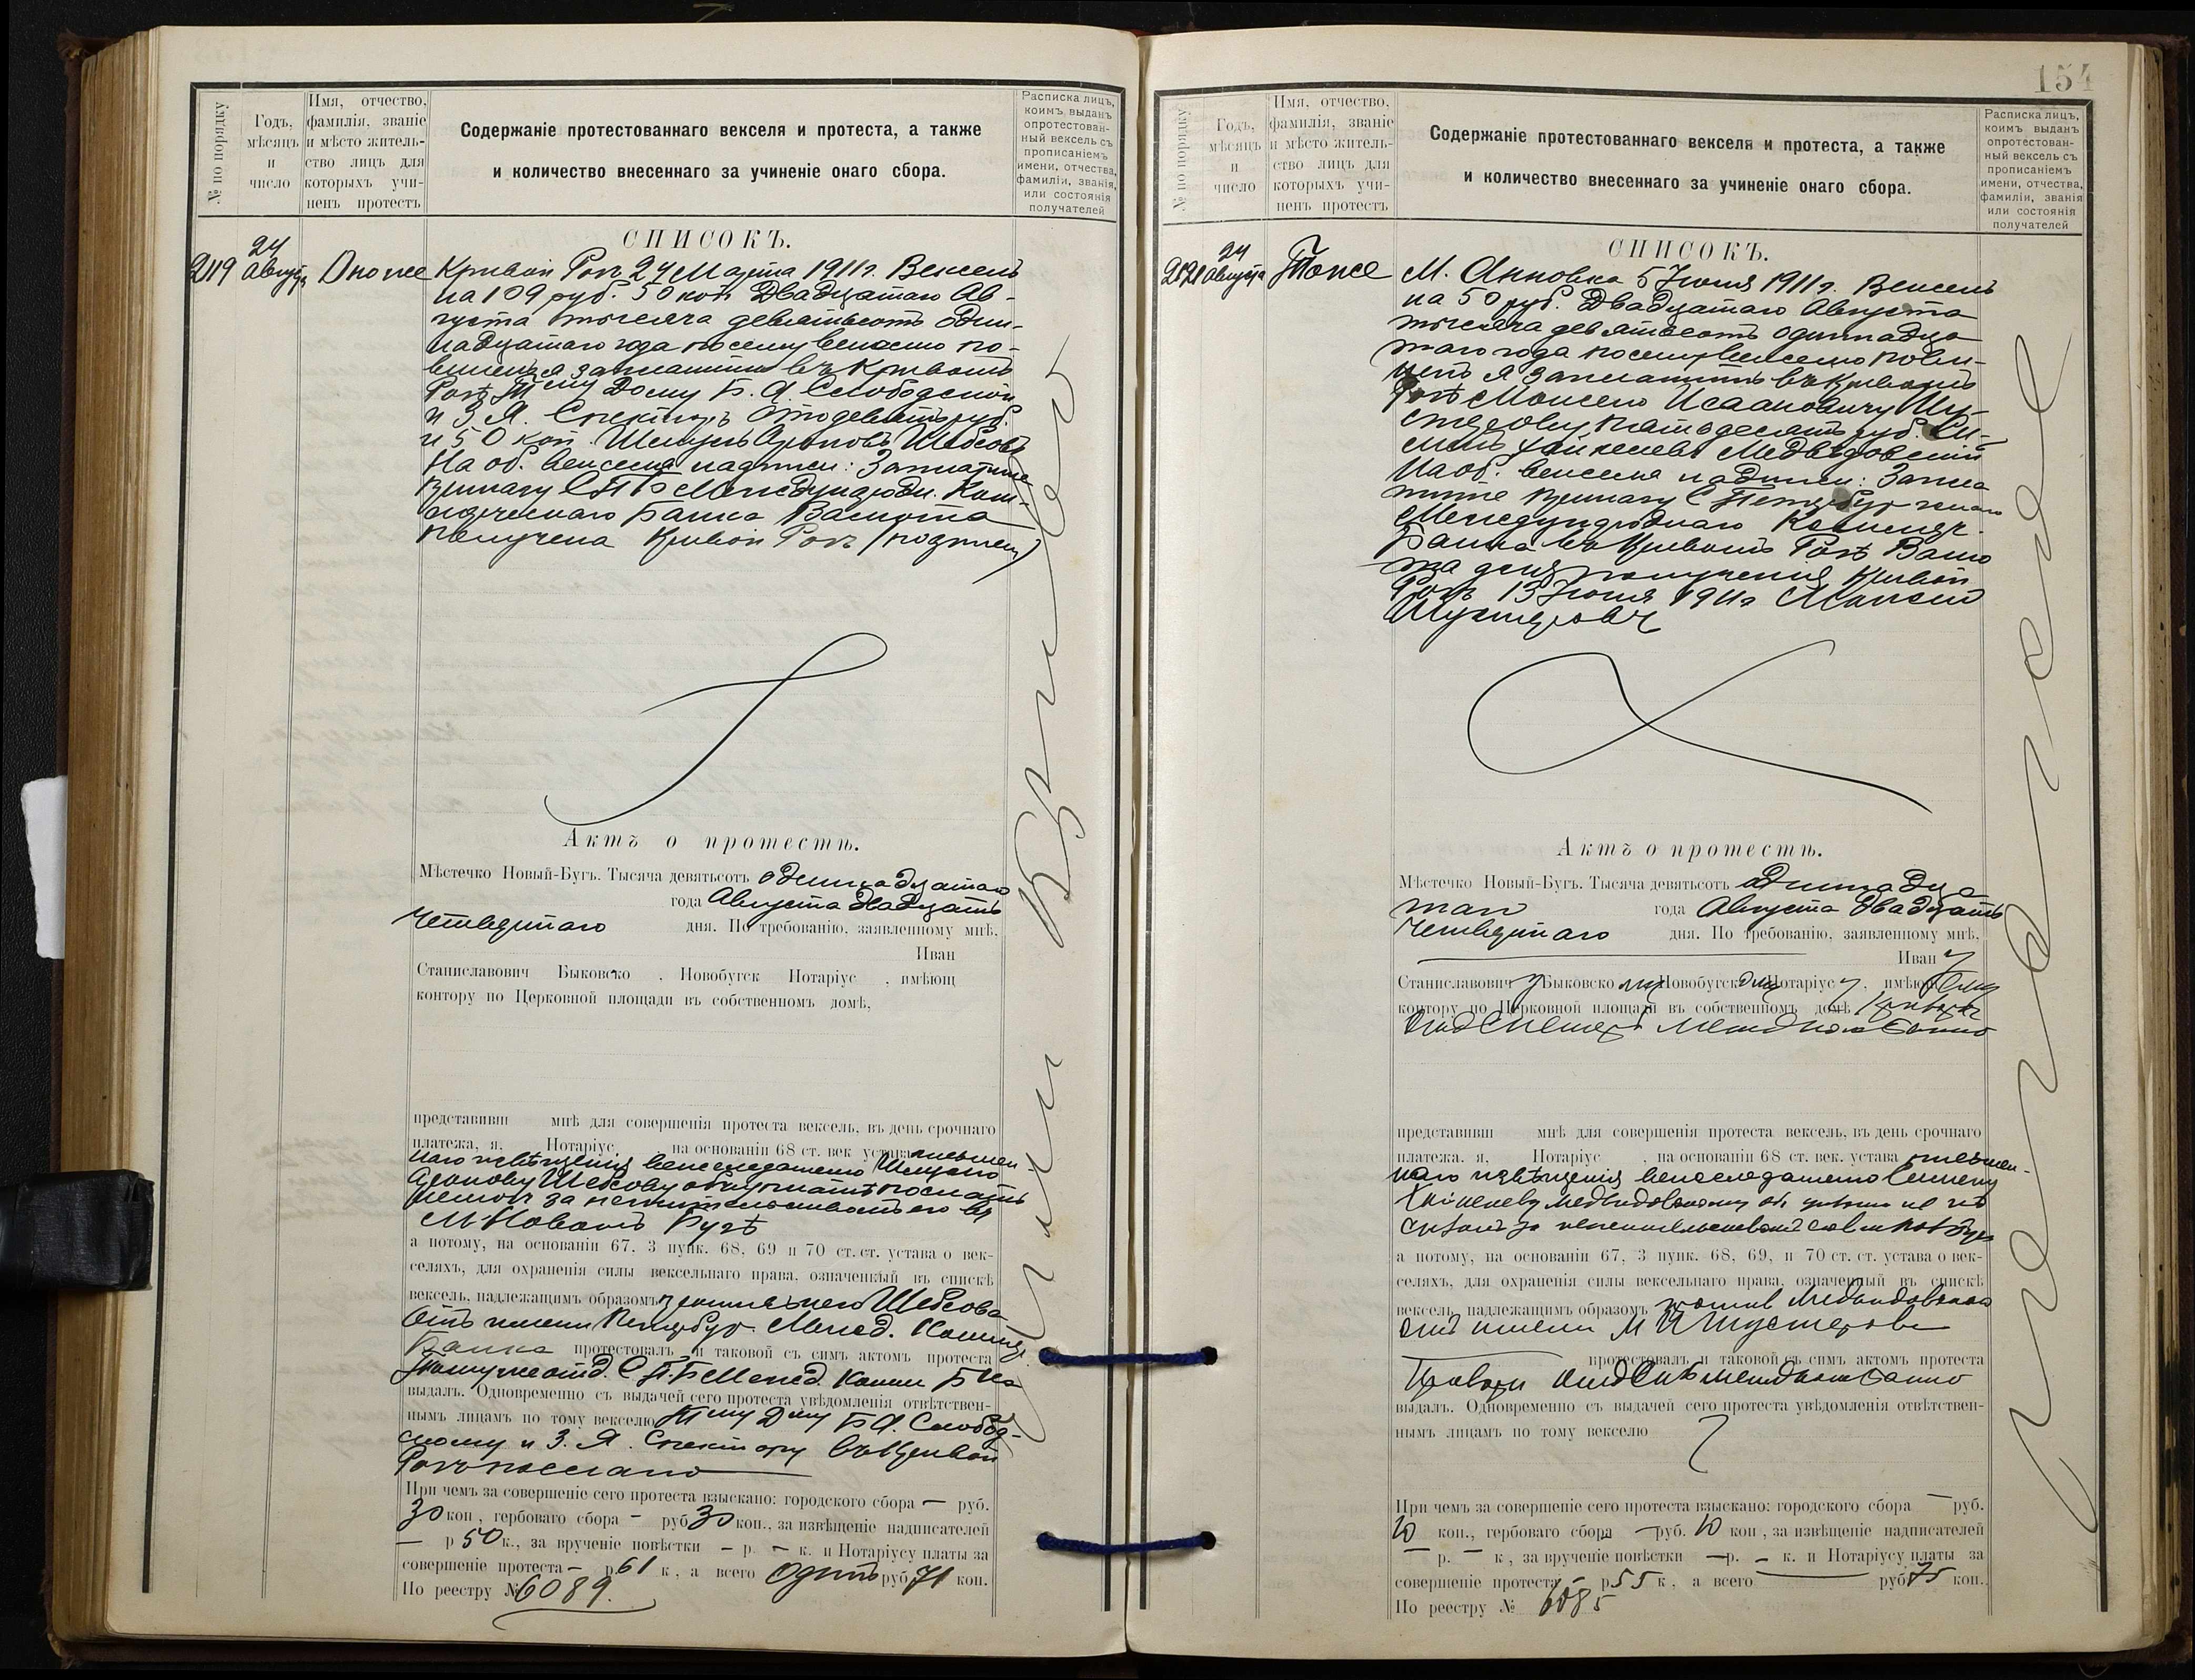 № по порядку
Годъ,
мѣсяцъ
и
число
Имя, отчество,
фамилія, званіе
и мѣсто житель-
ство лицъ для
которыхъ учи-
ненъ протестъ
Содержаніе протестованнаго векселя и протеста, а также
и количество внесеннаго за учиненіе онаго сбора.
Расписка лицъ,
коимъ выданъ
опротестован-
ный вексель съ
прописаніемъ
имени, отчества,
фамиліи, званія,
или состоянія
получателей
СПИСОКЪ.
24
2119 Августа
Кривой Рогъ 24 Марта 1911 г. Вексель
на 109 руб. 50 коп. Двадцатаго Ав-
густа тысяча девятьсотъ один-
надцатаго года по сему векселю по-
виненъ я заплатить въ Кривомъ
Рогѣ Т му Дому Б. А. Слободской
и З. Я. Спекторъ сто девять руб.
и 50 коп. Шебсовъ
На об. векселя надписи: Заплатите
приказу СПБ Международн. Ком-
мерческаго Банка Валюта
получена Кривой Рогъ (подписи)
Актъ о протестѣ.
Мѣстечко Новый-Бугъ. Тысяча девятьсотъ одиннадцатаго
года Августа двадцать
четвертаго дня. По требованію, заявленному мнѣ,
Иван
Станиславович Быковско , Новобугск Нотаріус , имѣющ
контору по Церковной площади въ собственномъ домѣ,
представивш мнѣ для совершенія протеста вексель, въ день срочнаго
платежа, я, Нотаріус на основаніи 68 ст. век устава письмен
наго извѣщенія векселедателю
Шебсову
за нежительствомъ его въ
М. Новомъ Бугѣ
а потому, на основаніи 67, 3 пунк. 68, 69 и 70 ст. ст. устава о век-
селяхъ, для охраненія силы вексельнаго права, означенный въ спискѣ
вексель, надлежащимъ образомъ Шебсова
отъ имени Петербур. Межд. Коммер.
Банка протестовалъ и таковой съ симъ актомъ протеста
отд. СПБ Межд. Комм Б ка
выдалъ. Одновременно съ выдачей сего протеста увѣдомленія отвѣтствен-
нымъ лицамъ по тому векселю Т му Д му Б. А. Слобод-
скому и З. Я. Спектору въ Кривой
Рогъ послано
При чемъ за совершеніе сего протеста взыскано: городского сбора — руб.
30 коп., гербоваго сбора — руб 30 коп., за извѣщеніе надписателей
— р 50 к., за врученіе повѣстки — р. — к. и Нотаріусу платы за
совершеніе протеста — р 61 к., а всего Одинъ руб 71 коп.
По реестру № 6089.
154
№ по порядку
Годъ,
мѣсяцъ
и
число
Имя, отчество,
фамилія, званіе
и мѣсто житель-
ство лицъ для
которыхъ учи-
ненъ протестъ
Содержаніе протестованнаго векселя и протеста, а также
и количество внесеннаго за учиненіе онаго сбора.
Расписка лицъ,
коимъ выданъ
опротестован-
ный вексель съ
прописаніемъ
имени, отчества,
фамиліи, званія
или состоянія
получателей
СПИСОКЪ.
24
Августа Тоже
М. Анновка 5 Іюня 1911 г. Вексель
на 50 руб. Двадцатаго Августа
тысяча девятьсотъ одиннадца
таго года по сему векселю пови-
ненъ я заплатить въ Кривомъ
Рогѣ Моисею Исааковичу Шу-
стерову пятьдесятъ руб.
Медвѣдовскій
На об. векселя надписи: Запла
тите приказу С Петербургскаго
Международнаго Коммерч.
Банка въ Кривомъ Рогѣ Валю
та получена Кривой
Рогъ 13 Іюня 1911 г Моисей
Шустеровъ
Актъ о протестѣ.
Мѣстечко Новый-Бугъ. Тысяча девятьсотъ одиннадца
таго года Августа двадцать
четвертаго дня. По требованію, заявленному мнѣ,
Иван у
Станиславович у Быковско му Новобугск ому Нотаріус у, имѣющ ему
контору по Церковной площади въ собственномъ домѣ,
представивш мнѣ для совершенія протеста вексель, въ день срочнаго
платежа. я, Нотаріус , на основаніи 68 ст. век. устава письмен-
наго извѣщенія векселедателю
Медвѣдовскому
а потому, на основаніи 67, 3 пунк. 68, 69, и 70 ст. ст. устава о век-
селяхъ, для охраненія силы вексельнаго права, означенный въ спискѣ
вексель, надлежащимъ образомъ противъ Медвѣдовскаго
отъ имени М И Шустерова
протестовалъ и таковой съ симъ актомъ протеста
выдалъ. Одновременно съ выдачей сего протеста увѣдомленія отвѣтствен-
нымъ лицамъ по тому векселю
При чемъ за совершеніе сего протеста взыскано: городского сбора — руб.
10 коп., гербоваго сбора — руб. 10 коп., за извѣщеніе надписателей
— р. — к., за врученіе повѣстки — р. — к. и Нотаріусу платы за
совершеніе протеста — р 55 к., а всего руб 75 коп.
По реестру № 6085